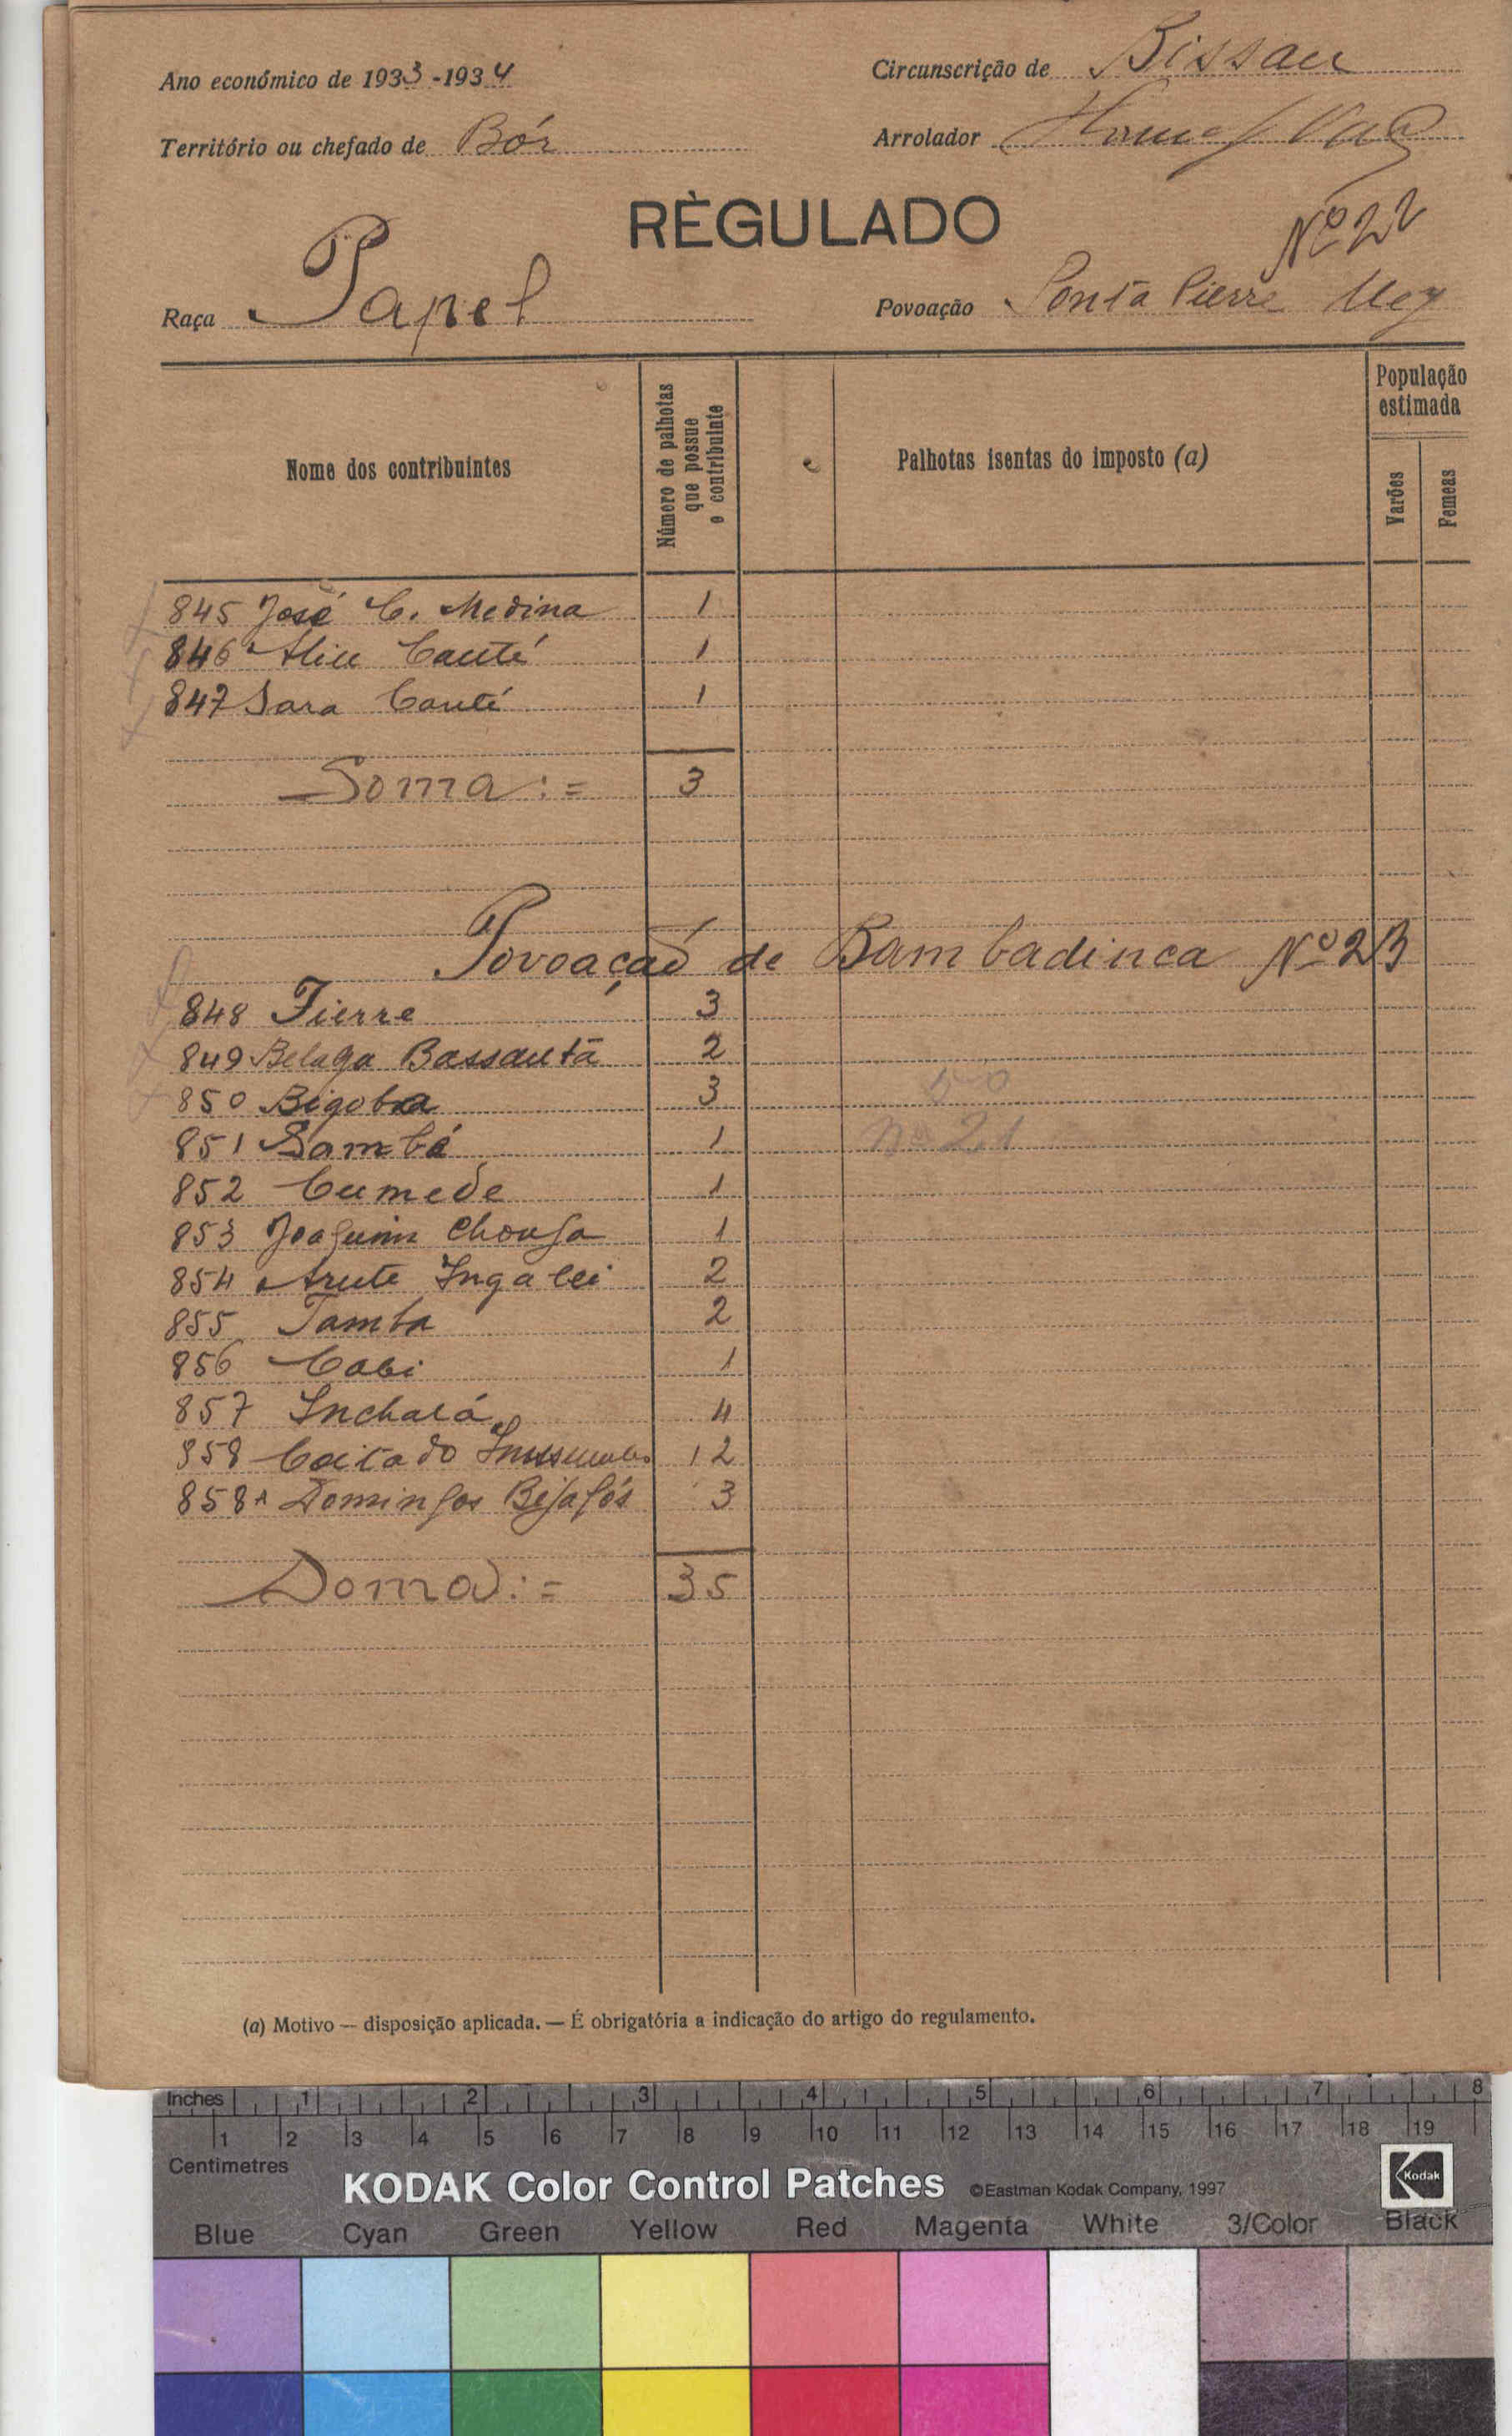 Ano económico de 1933-1934
Circunscrição de Bissau
Território ou chefado de Bór
Arrolador
RÈGULADO
Nº 22
Raça Papel
Povoação Ponta Pierre
Nome dos contribuintes
Número de palhotas que possue o contribuinte
Palhotas isentas do imposto (a)
População estimada
Varões
Femeas
845 José C. Medina 1
846 Alice Cauté 1
847 Sara Cauté 1
Soma := 3
Povoação de Bambadinca Nº 23
848 Pierre 3
849 Belaga Bassautã 2
850 Bigoba 3
851 Sambá 1
Nº 21
852 Cumede 1
853 Joaquim 1
854 Arute 2
855 Tamba 2
856 Cabi 1
857 Inchalá 4
858 12
858A Domingos Bijagós 3
Soma := 35
(a) Motivo — disposição aplicada. — É obrigatória a indicação do artigo do regulamento.
Inches 1 2 3 4 5 6 7 8
1 2 3 4 5 6 7 8 9 10 11 12 13 14 15 16 17 18 19
Centimetres
KODAK Color Control Patches ©Eastman Kodak Company, 1997 Kodak
Blue Cyan Green Yellow Red Magenta White 3/Color Black